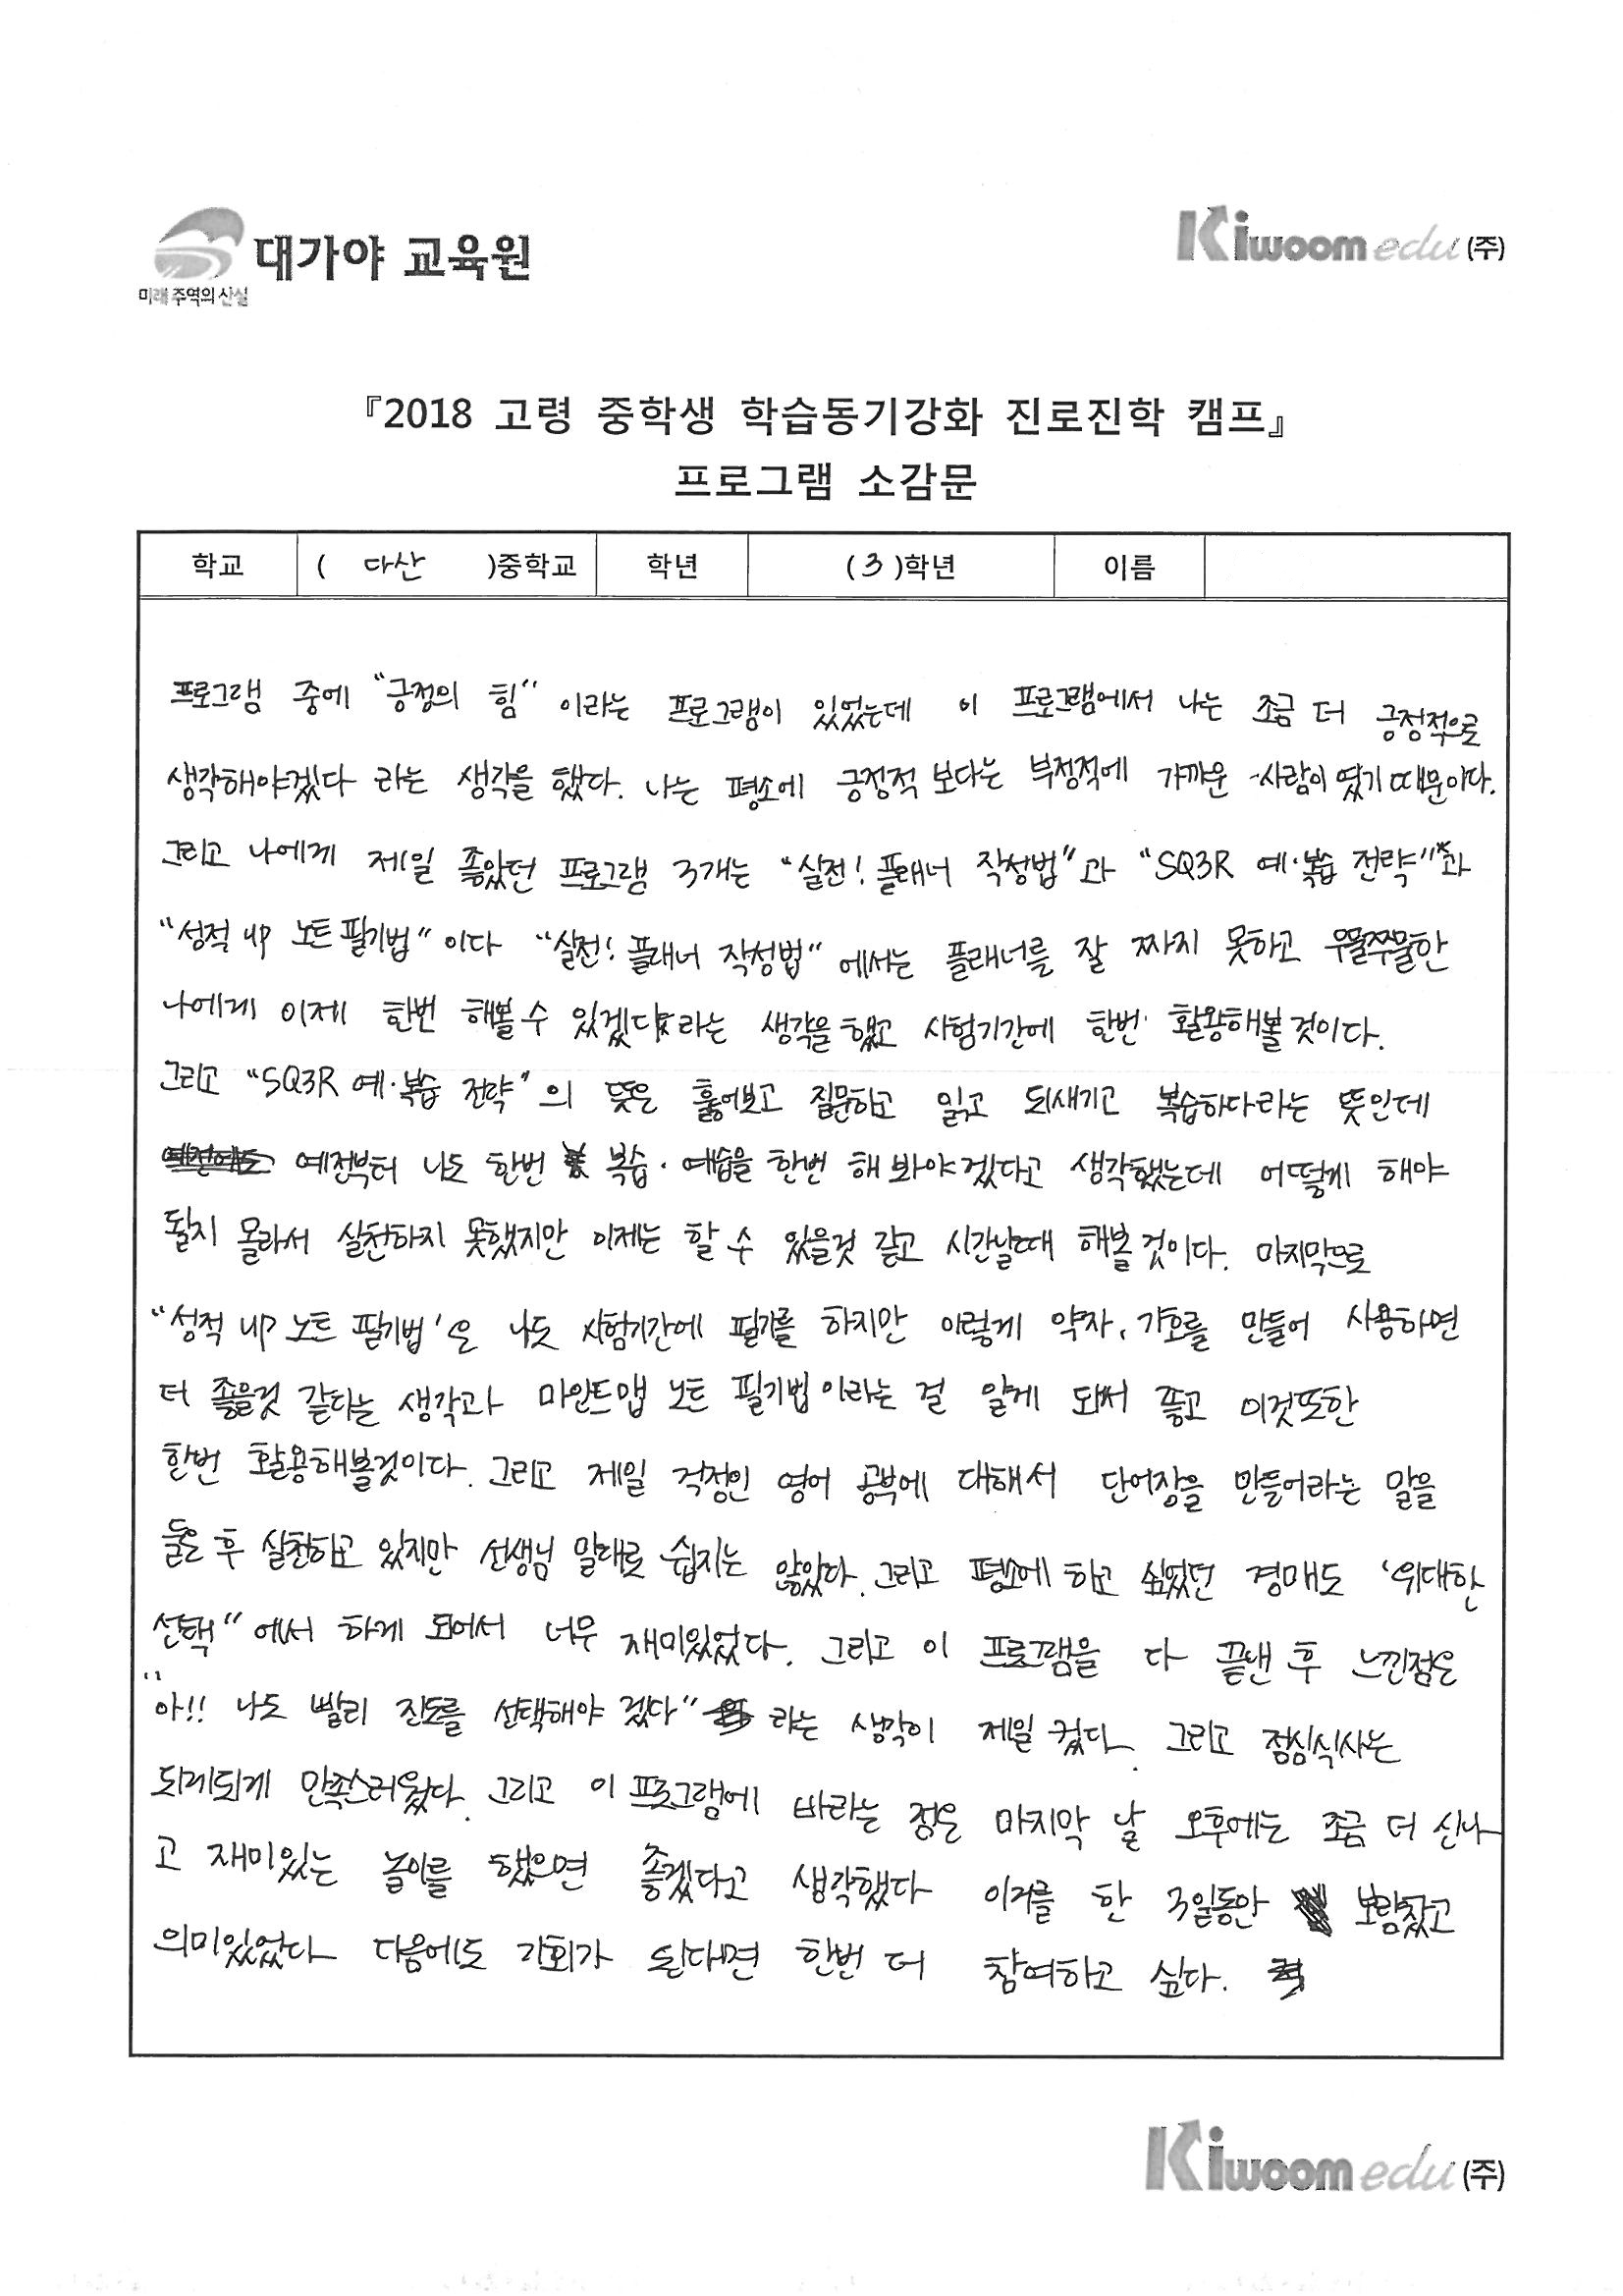 대가야 교육원
미래 주역의 산실
Kiwoom edu (주)
『2018 고령 중학생 학습동기강화 진로진학 캠프』
프로그램 소감문
학교 ( 다산 )중학교 학년 (3)학년 이름
프로그램 중에 "긍정의 힘" 이라는 프로그램이 있었는데 이 프로그램에서 나는 조금 더 긍정적으로
생각해야겠다 라는 생각을 했다. 나는 평소에 긍정적 보다는 부정적에 가까운 사람이 였기 때문이다.
그리고 나에게 제일 좋았던 프로그램 3개는 "실전! 플래너 작성법"과 "SQ3R 예·복습 전략"과
"성적 up 노트 필기법" 이다 "실전! 플래너 작성법" 에서는 플래너를 잘 짜지 못하고 우물쭈물한
나에게 이제 한번 해볼 수 있겠다라는 생각을 했고 시험기간에 한번 활용해볼 것이다.
그리고 "SQ3R 예·복습 전략"의 뜻은 훑어보고 질문하고 읽고 되새기고 복습하다라는 뜻인데
예전부터 나도 한번 복습·예습을 한번 해 봐야 겠다고 생각했는데 어떻게 해야
될지 몰라서 실천하지 못했지만 이제는 할 수 있을것 같고 시간날때 해볼 것이다. 마지막으로
"성적 up 노트 필기법'은 나도 시험기간에 필기를 하지만 이렇게 약자, 기호를 만들어 사용하면
더 좋을것 같다는 생각과 마인드맵 노트 필기법 이라는 걸 알게 되서 좋고 이것또한
한번 활용해볼것이다. 그리고 제일 걱정인 영어 공부에 대해서 단어장을 만들어라는 말을
들은 후 실천하고 있지만 선생님 말대로 쉽지는 않았다. 그리고 평소에 하고 싶었던 경매도 '위대한
선택" 에서 하게 되어서 너무 재미있었다. 그리고 이 프로그램을 다 끝낸 후 느낀점은
"아!! 나도 빨리 진로를 선택해야 겠다" 라는 생각이 제일 컸다. 그리고 점심식사는
되게되게 만족스러웠다. 그리고 이 프로그램에 바라는 점은 마지막 날 오후에는 조금 더 신나
고 재미있는 놀이를 했으면 좋겠다고 생각했다 이거를 한 3일동안 보람찼고
의미있었다 다음에도 기회가 된다면 한번 더 참여하고 싶다.
Kiwoom edu (주)